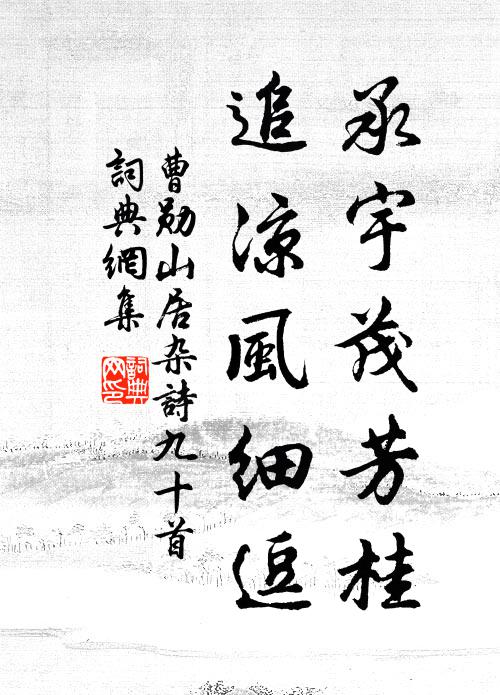 承宇茂芳桂
追涼風細逗
曹勛山居杂詩九十首
詞典網集
詞典網印